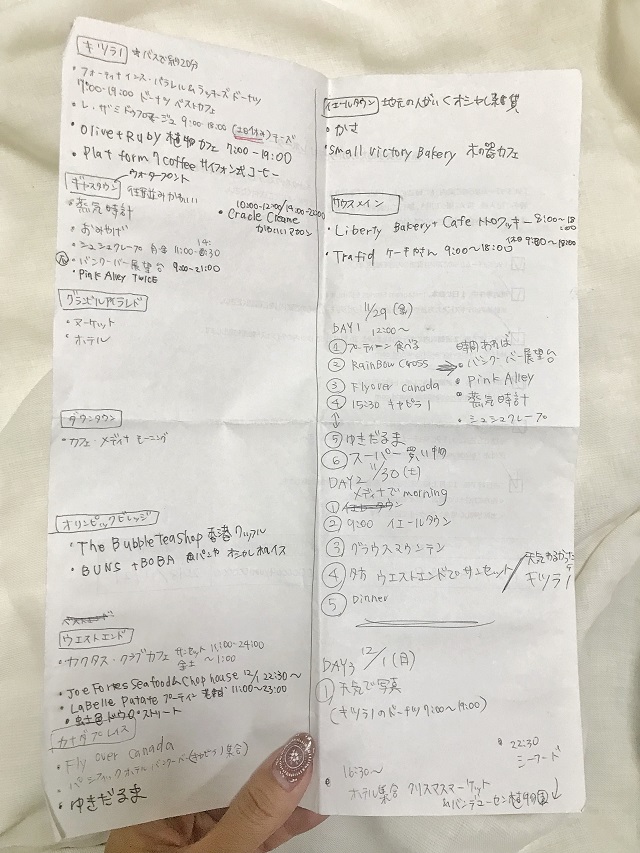 キツラノ *バスで約20分
・フォーティナインス・パラレル&ラッキーズ ドーナツ
7:00-19:00 ドーナツ ベストカフェ
・レ・ザミドゥフロマージュ 9:00-18:00 (土日休み) チーズ
・Olive+Ruby 植物カフェ 7:00-19:00
・Plat form 7 coffee サイフォン式コーヒー
ウォーターフロント
ギャスタウン 街並みかわいい
・蒸気時計
・おみやげ
・シュシュクレープ 月金 11:00-
・バンクーバー展望台 9:00-21:00
・Pink Alley TWICE
10:00-12:00/19:00-
・Cracle Creame
かわいいマカロン
グランビルアイランド
・マーケット
・ホテル
ダウンタウン
・カフェ・メディナ モーニング
オリンピックビレッジ
・The Bubble Tea Shop 香港ワッフル
・BUNS +BOBA
ウエストエンド
・カクタス・クラブカフェ サンセット 11:00-24:00
金土 ~1:00
・Joe Fortes Seafood & Chop house 12/1 22:30~
・LaBelle Patate プーティン 11:00~23:00
・ストリート
カナダプレイス
・Fly over Canada
・パシフィックホテル バンクーバー(キャピラノ集合)
・ゆきだるま
イエールタウン 地元の人がいくオシャレ雑貨
・かさ
・Small Victory Bakery 木の器カフェ
サウスメイン
・Liberty Bakery+Cafe トトロクッキー 8:00~18:00
・Trafid ケーキやさん 9:00~18:00 休日 9:30~18:00
11/29(金)
DAY1 12:00~
① プーティーン食べる
② RainBow Cross
③ Flyover canada
④ 15:30 キャピラノ
⑤ ゆきだるま
⑥ スーパー 買い物
時間あれば
・バンクーバー展望台
・Pink Alley
・蒸気時計
・シュシュクレープ
11/30(土)
DAY2
メディナでmorning
① イエールタウン
② 9:00 イエールタウン
③ グラウスマウンテン
④ 夕方 ウエストエンドでサンセット / 天気わるかったら キツラノ
⑤ Dinner
DAY3 12/1(日)
① 天気で写真
(キツラノのドーナツ 7:00~19:00)
・22:30
シーフード
・16:30~
ホテル集合 クリスマスマーケット
&バンデューセン植物園